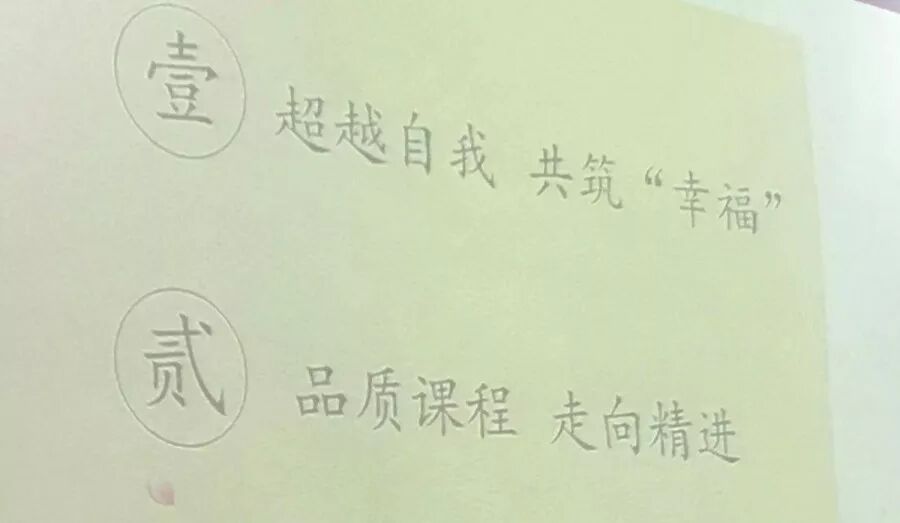 壹 超越自我 共筑“幸福”
贰 品质课程 走向精进